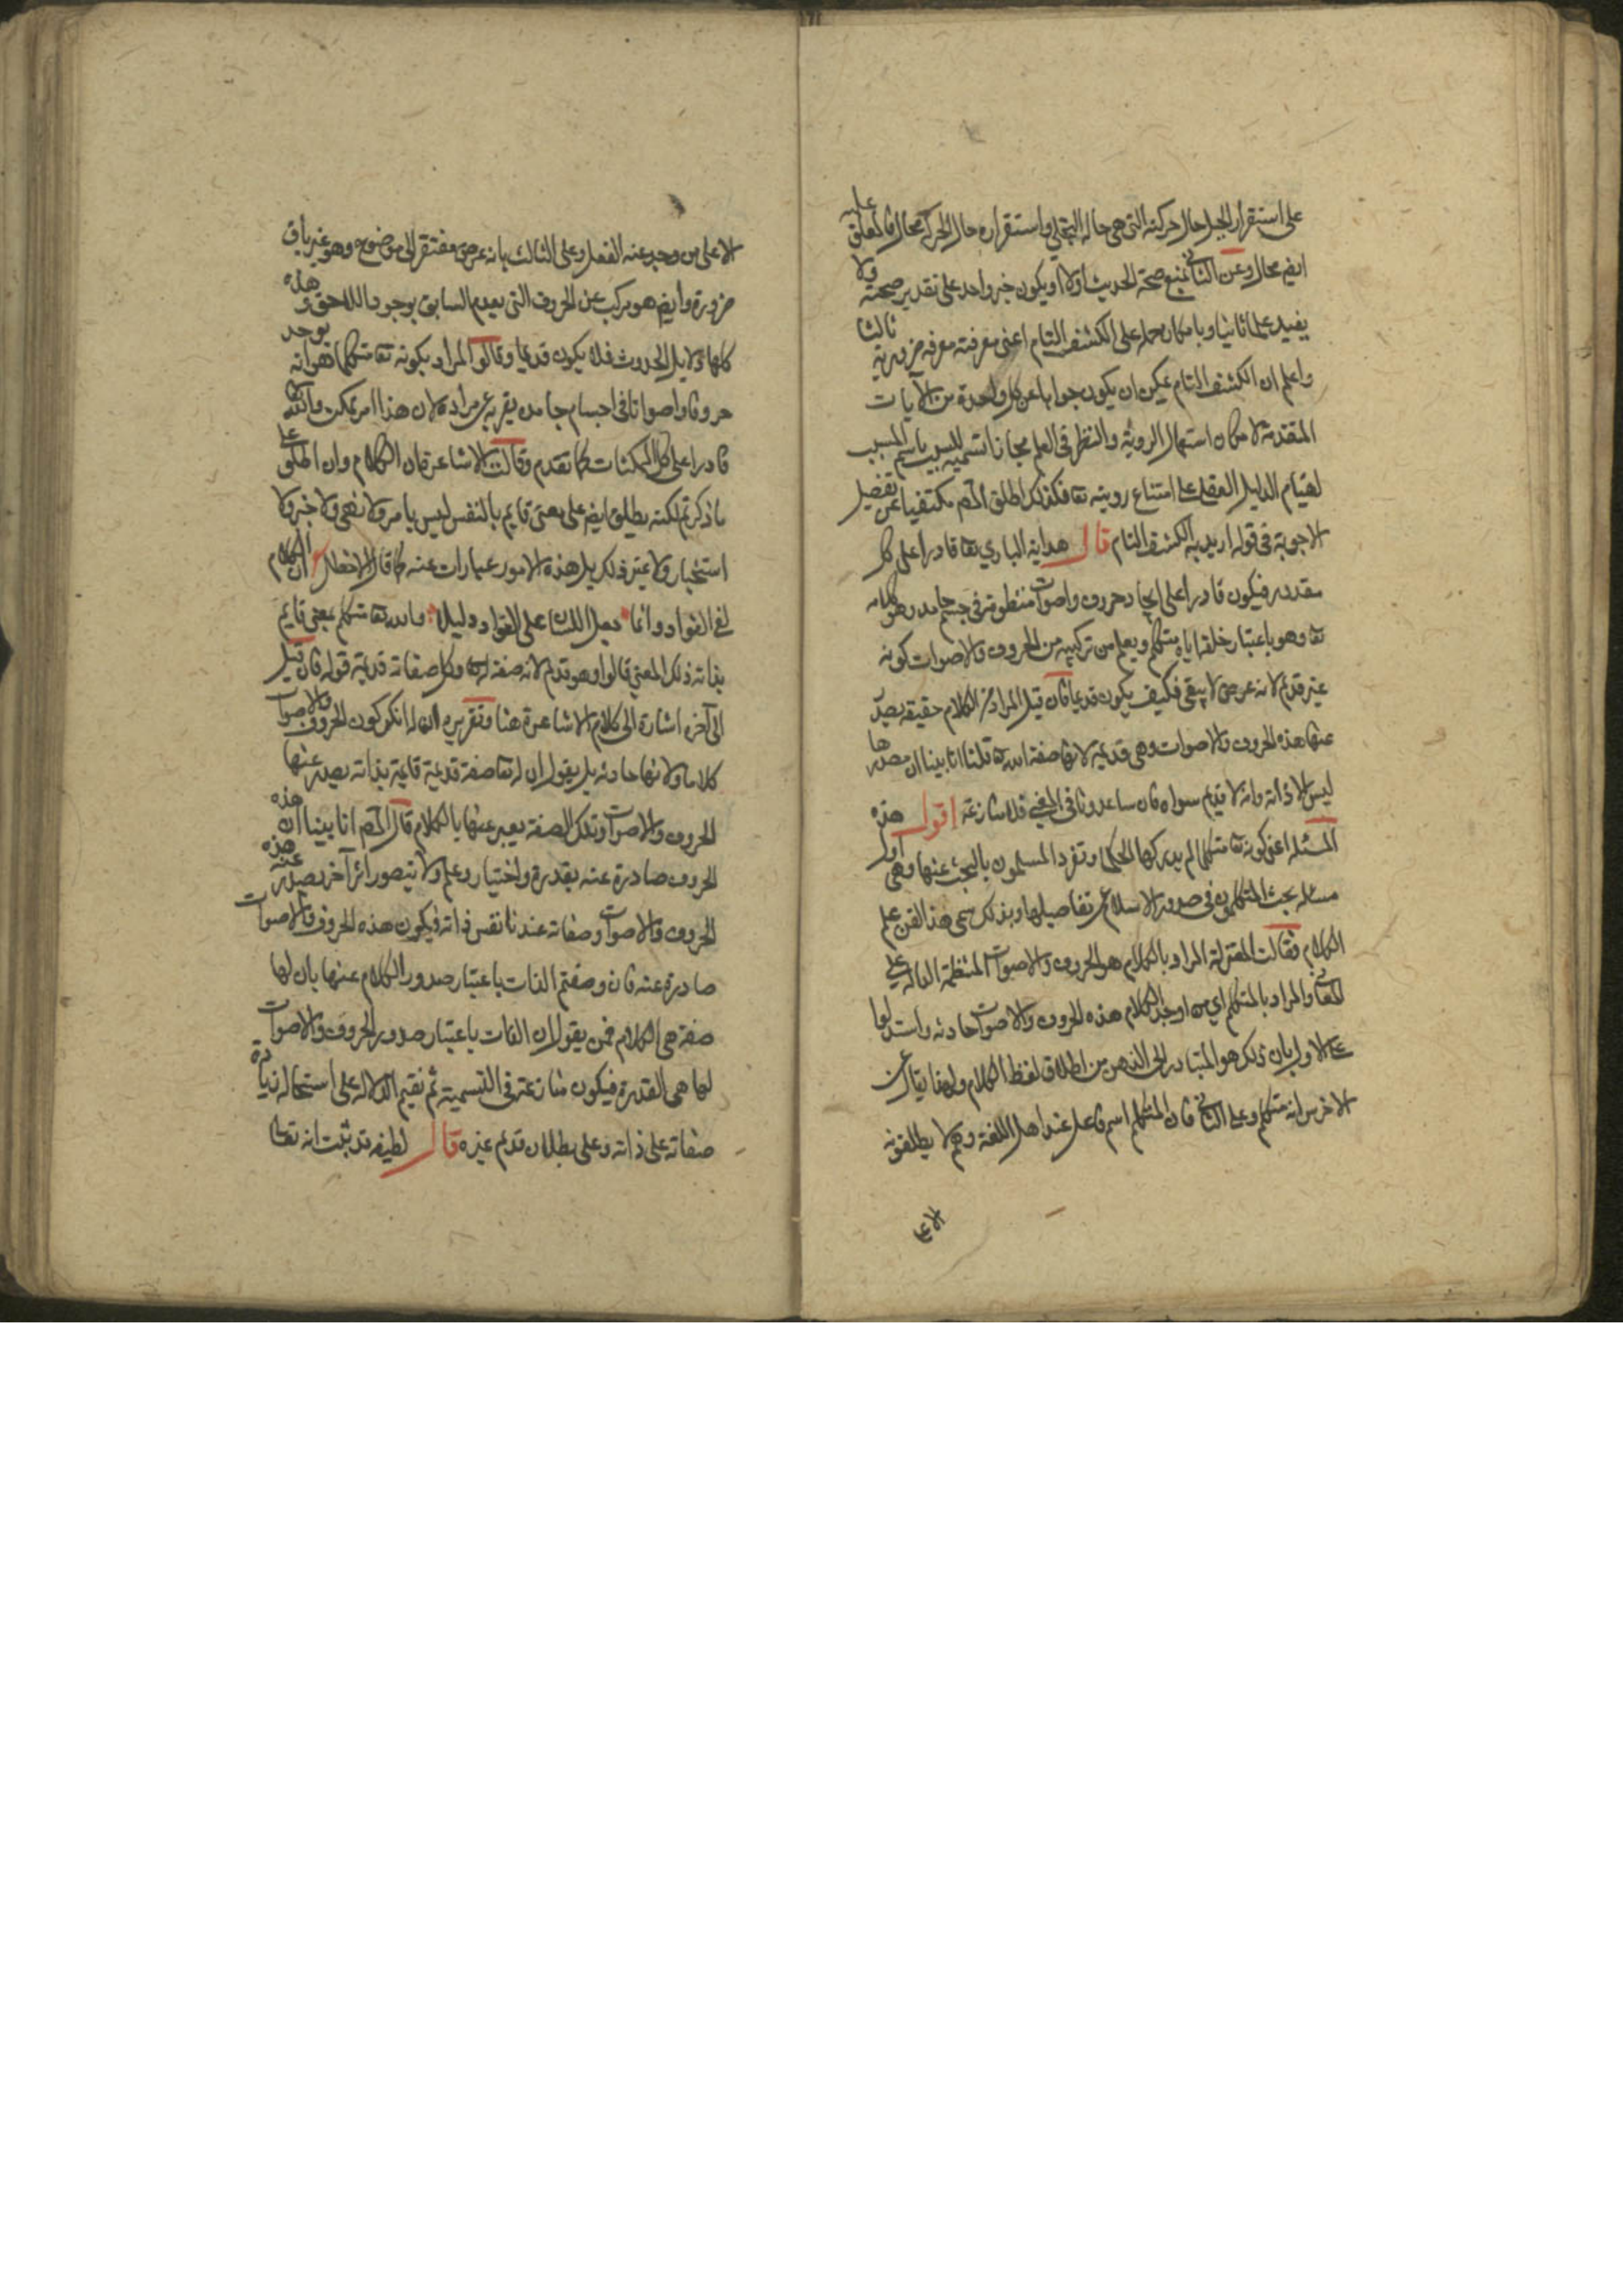 على استقرار الجبل حال حركته التى هى حاله التجلي واستقراره حال الحركة محال فالمعلق عليه
ايض محال وعن الثانى بمنع صحة الحديث اولا او يكون خبر واحد على تقدير صحته ولا
يفيد علما ثانيا وبامكان حمله على الكشف التام اعنى معرفته معرفه ضرورية ثالثا
واعلم ان الكشف التام يمكن ان يكون جوابا عن كل واحدة من الآيات
المتقدمة لامكان استعمال الروية والنظر فى العلم مجازا تسمية للسبب باسم المسبب
لقيام الدليل العقلى على امتناع رويته تعا فكذلك اطلق المص مكتفيا عن تفصيل
الاجوبة فى قوله اريد به الكشف التام قال هداية البارى تعا قادرا على كل
مقدور فيكون قادرا على ايجاد حروف واصوات منظومة فى جسم جامد وهو كلامه
تعا وهو باعتبار خلقه اياه متكلم ويعلم من تركيبه من الحروف والاصوات كونه
غير قديم لانه عرض لا يبقى فكيف يكون قديما فان قيل المراد من الكلام حقيقه يصدر
عنها هذه الحروف والاصوات وهى قديمة لانها صفة الله تعا قلنا انا بينا ان مصدرها
ليس الا ذاته وانه لا قديم سواه فان ساعدونا فى المعنى فلا منازعة اقول هذه
المسئله اعنى كونه تعا متكلما لم يدركها الحكما وتفرد المسلمون بالبحث عنها وهى اول
مسئله بحث المتكلمون فى صدور الاسلام عن تفاصيلها وبذلك سمى هذا الفن علم
الكلام فقالت المعتزلة المراد بالكلام هو الحروف والاصوات المنتظمة الدالة على
المعانى والمراد بالمتكلم اي من اوجد الكلام هذه الحروف والاصوات حادثه واستدلوا
على الاول بان ذلك هو المتبادر الى الذهن من اطلاق لفظ الكلام ولهذا يقال عن
الاخرس انه متكلم وعلى الثانى فان المتكلم اسم فاعل عند اهل اللغة وهم لا يطلقونه
الا على
الا على من وجد عنه الفعل وعلى الثالث بانه عرض مفتقر الى موضوع وهو غير باق
ضرورة وايض هو مركب عن الحروف التى يعدم السابق بوجود اللاحق و هذه
كلها دلايل الحدوث فلا يكون قديما وقالوا المراد بكونه تعا متكلما هو انه يوجد
حروفا واصواتا فى اجسام جامده يقر به عن مراده لان هذا امر ممكن والله تعا
قادرا على كل الممكنات كما تقدم وقالت الاشاعرة ان الكلام وان اطلق على
ما ذكرتم لكنه يطلق ايض على معنى قايم بالنفس ليس بامر ولا نهى ولا خبر ولا
استخبار ولا غير ذلك بل هذه الامور عبارات عنه كما قال الاخطل ان الكلام
لفي الفواد وانما جعل اللسان على الفواد دليلا فالله تعا متكلم بمعنى قايم
بذاته ذلك المعنى قالوا وهو قديم لانه صفة له تعا وكل صفاته قديمة قوله فان قيل
الى آخره اشارة الى كلام الاشاعرة هنا وتقريره ان لا ننكر كون الحروف والاصوات
كلاما ولا انها حادثه بل يقول ان له تعا صفة قديمة قايمة بذاته يصدر عنها
الحروف والاصوات وتلك الصفة يعبر عنها بالكلام قال المص انا بينا ان هذه
الحروف صادرة عنه بقدرة واختيار وعلم ولا نتصور امرا آخر يصدر عنه هذه
الحروف والاصوات وصفاته عندنا نفس ذاته فيكون هذه الحروف والاصوات
صادرة عنه فان وصفتم الذات باعتبار صدور الكلام عنها بان لها
صفة هى الكلام فمن يقول ان الذات باعتبار صدور الحروف والاصوات
لها هى القدرة فيكون منازعة فى التسمية ثم نقيم الدلاله على استحاله زيادة
صفاته على ذاته وعلى بطلان قديم غيره قال لطيفه قد ثبت انه تعالى